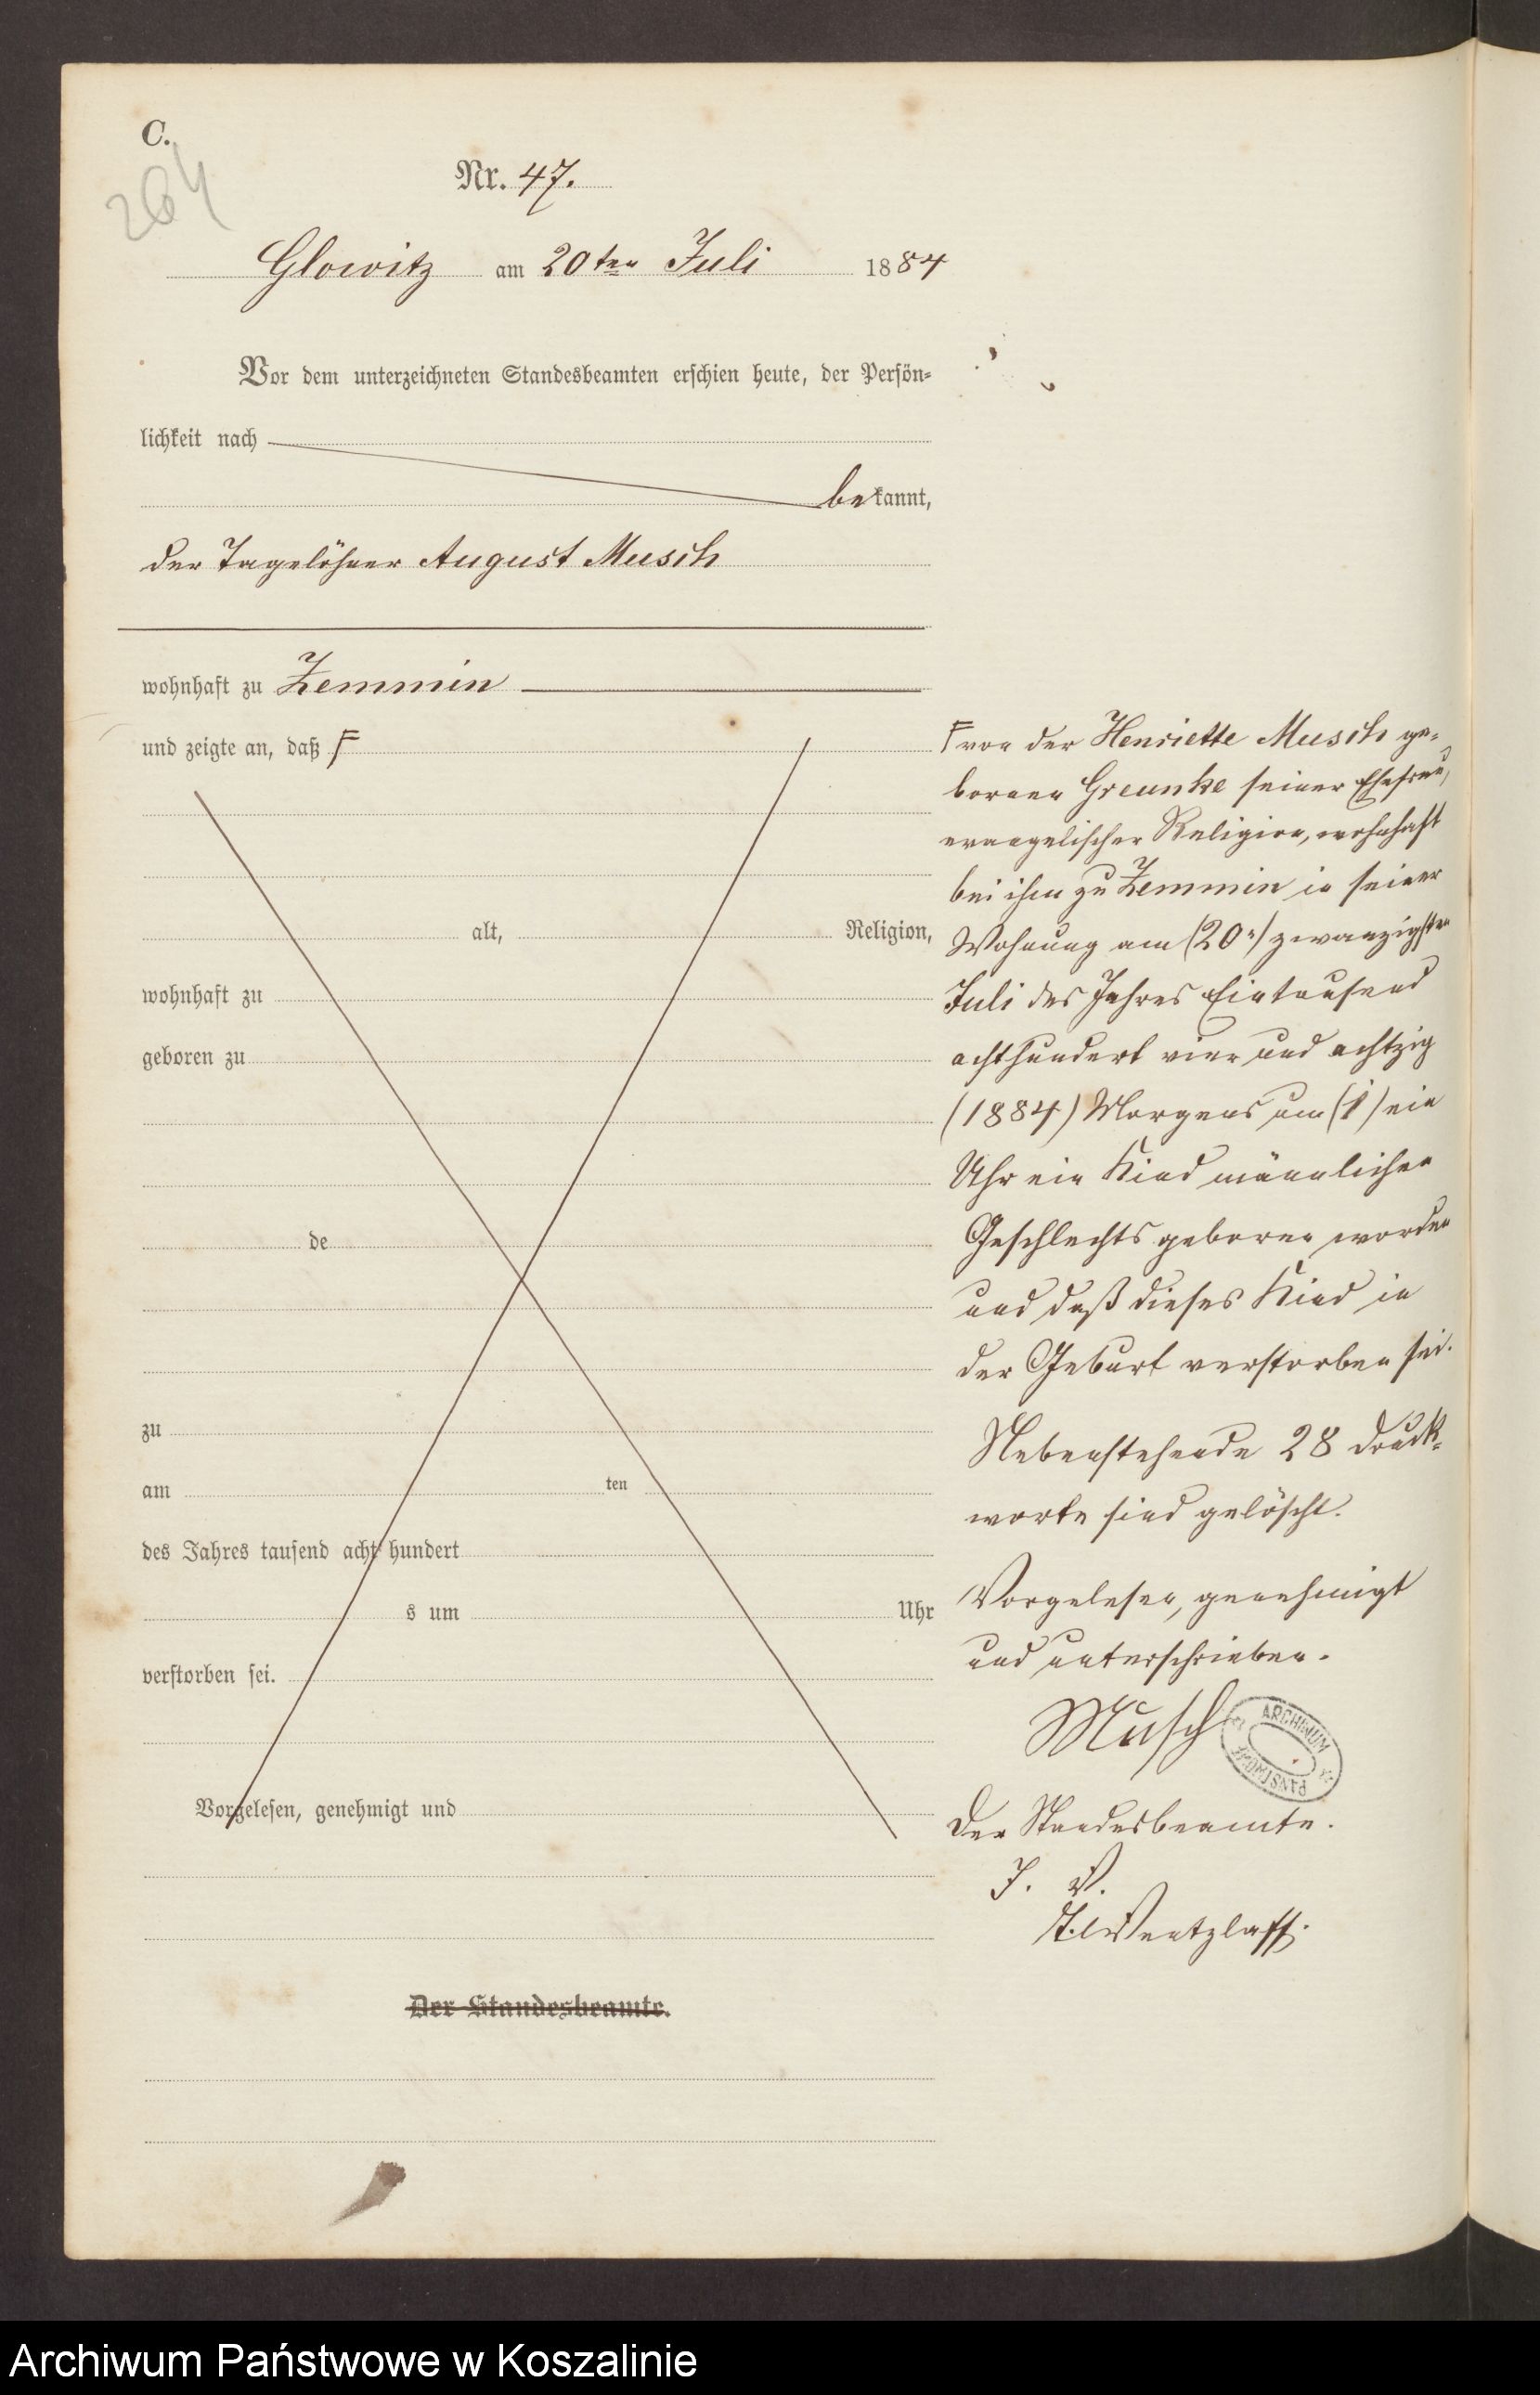 C.
264
Nr. 47.
Glowitz am 20ten Juli 1884
Vor dem unterzeichneten Standesbeamten erschien heute, der Persön-
lichkeit nach
bekannt,
der Tagelöhner August Musch
wohnhaft zu Zemmin
und zeigte an, daß F
F von der Henriette Musch ge-
borenen Greunke seiner Ehefrau,
evangelischer Religion, wohnhaft
bei ihm zu Zemmin in seiner
Wohnung am (20n) zwanzigsten
Juli des Jahres Eintausend
achthundert vier und achtzig
(1884) Morgens um (1) ein
Uhr ein Kind männlichen
Geschlechts geboren worden
und daß dieses Kind in
der Geburt verstorben sei.
Nebenstehende 28 Druck-
worte sind gelöscht.
Vorgelesen, genehmigt
und unterschrieben.
Musch
Der Standesbeamte.
J. V.
Wentzlaff.
alt, Religion,
wohnhaft zu
geboren zu
de
zu
am ten
des Jahres tausend acht hundert
s um Uhr
verstorben sei.
Vorgelesen, genehmigt und
Der Standesbeamte.
ARCHIWUM PAŃSTWOWE
Archiwum Państwowe w Koszalinie